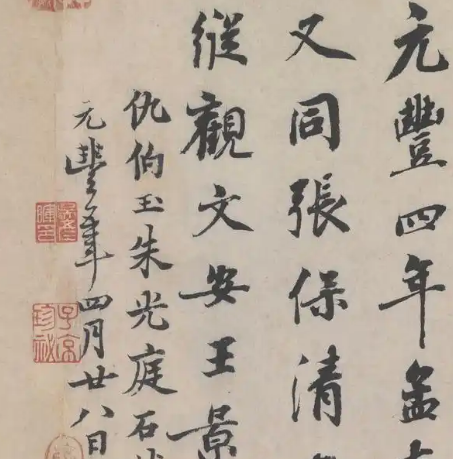 元豐四年孟
又同張保清
縱觀文安王景
仇伯玉朱光庭石
元豐五年四月廿八日
子京
珍秘